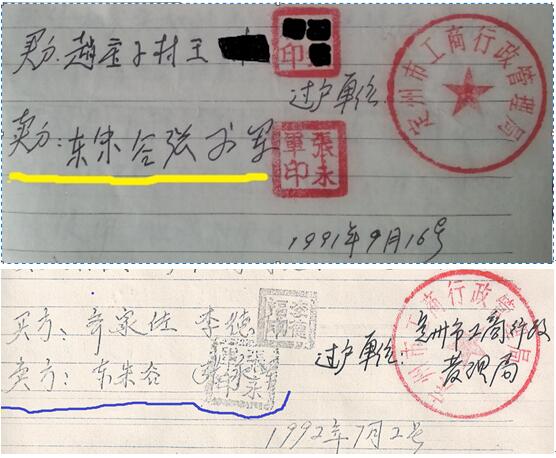 买方:趙 子村王
印
过户单位:
定州市工商行政管理局
卖方:东朱谷张永军
張永軍印
1991年9月16号
买方:齐家佐 李德
过户单位:定州市工商行政
管理局
州市工商行政管 局
卖方:东朱谷
張永軍印
1992年7月2号